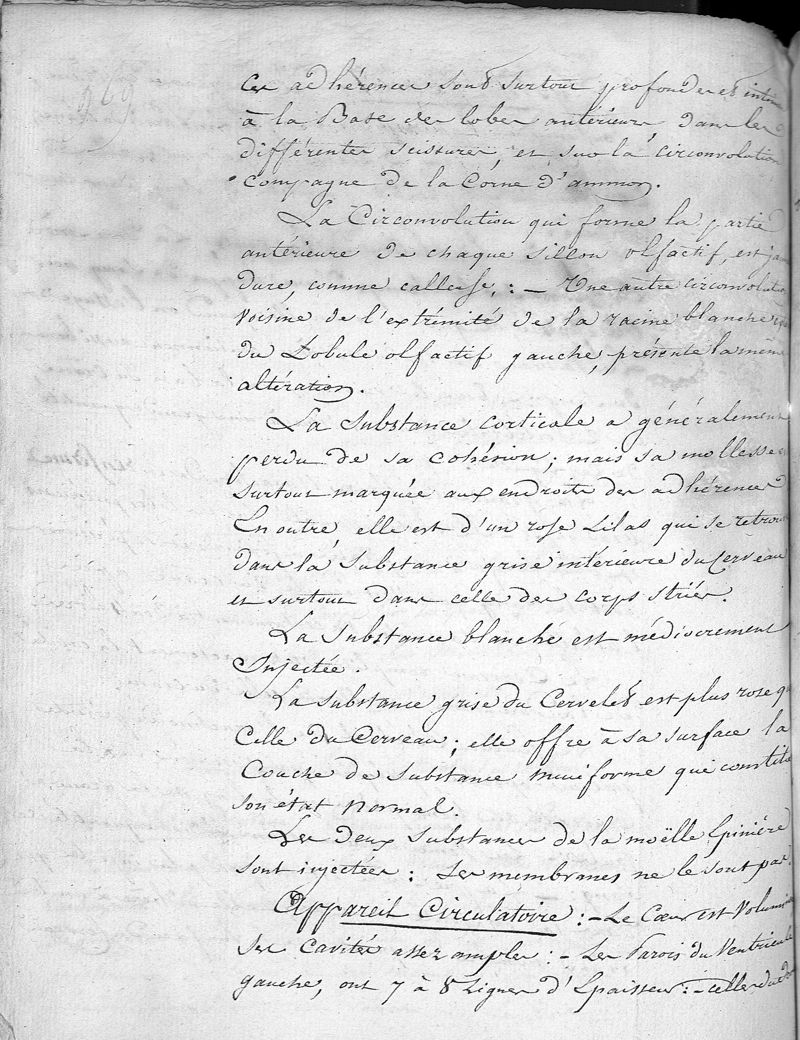 269
Ces adhérences sont surtout profondes et intim
à la Base des lobes antérieurs, dans les
différentes scissures, et sur la circonvolution
compagne de la Corne d'ammon.
La Circonvolution qui forme la partie
antérieure de chaque sillon olfactif, est jau
dure, comme calleuse, : — Une autre circonvolution
voisine de l'extrémité de la racine blanche
du Lobule olfactif gauche, présente la même
altération.
La substance corticale a généralement
perdu de sa cohésion ; mais sa mollesse e
surtout marquée aux endroits des adhérences
En outre, elle est d'un rose Lilas qui se retrouv
dans la substance grise intérieure du Cerveau
et surtout dans celle des corps striés.
La substance blanche est médiocrement
Injectée.
La substance grise du Cervelet est plus rose qu
Celle du Cerveau ; elle offre à sa surface la
Couche de substance muciforme qui constitu
son état normal.
Les deux substances de la moëlle Epinière
sont injectées : Ses membranes ne le sont pas.
Appareil Circulatoire : — Le Cœur est Volumin
ses cavités assez amples : — Les Parois du Ventricule
gauche, ont 7 à 8 Lignes d'Epaisseur : — celles du d